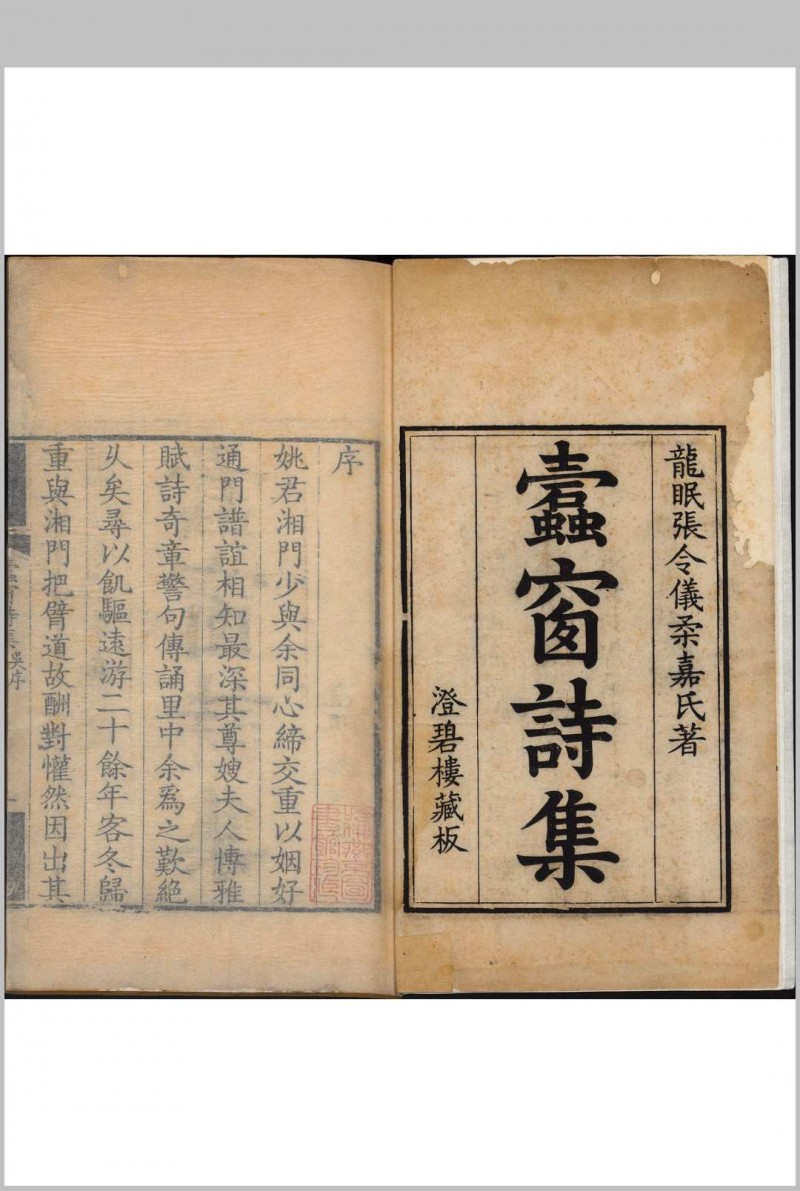 龍眠張令儀柔嘉氏著
蠹窗詩集
澄碧樓藏板
序
姚君湘門少與余同心締交重以姻好
通門譜誼相知最深其尊嫂夫人博雅
賦詩奇章警句傳誦里中余爲之歎絶
乆矣尋以飢驅遠游二十餘年客冬歸
重與湘門把臂道故酬對懽然因出其
蠹窗詩集 吳序 一